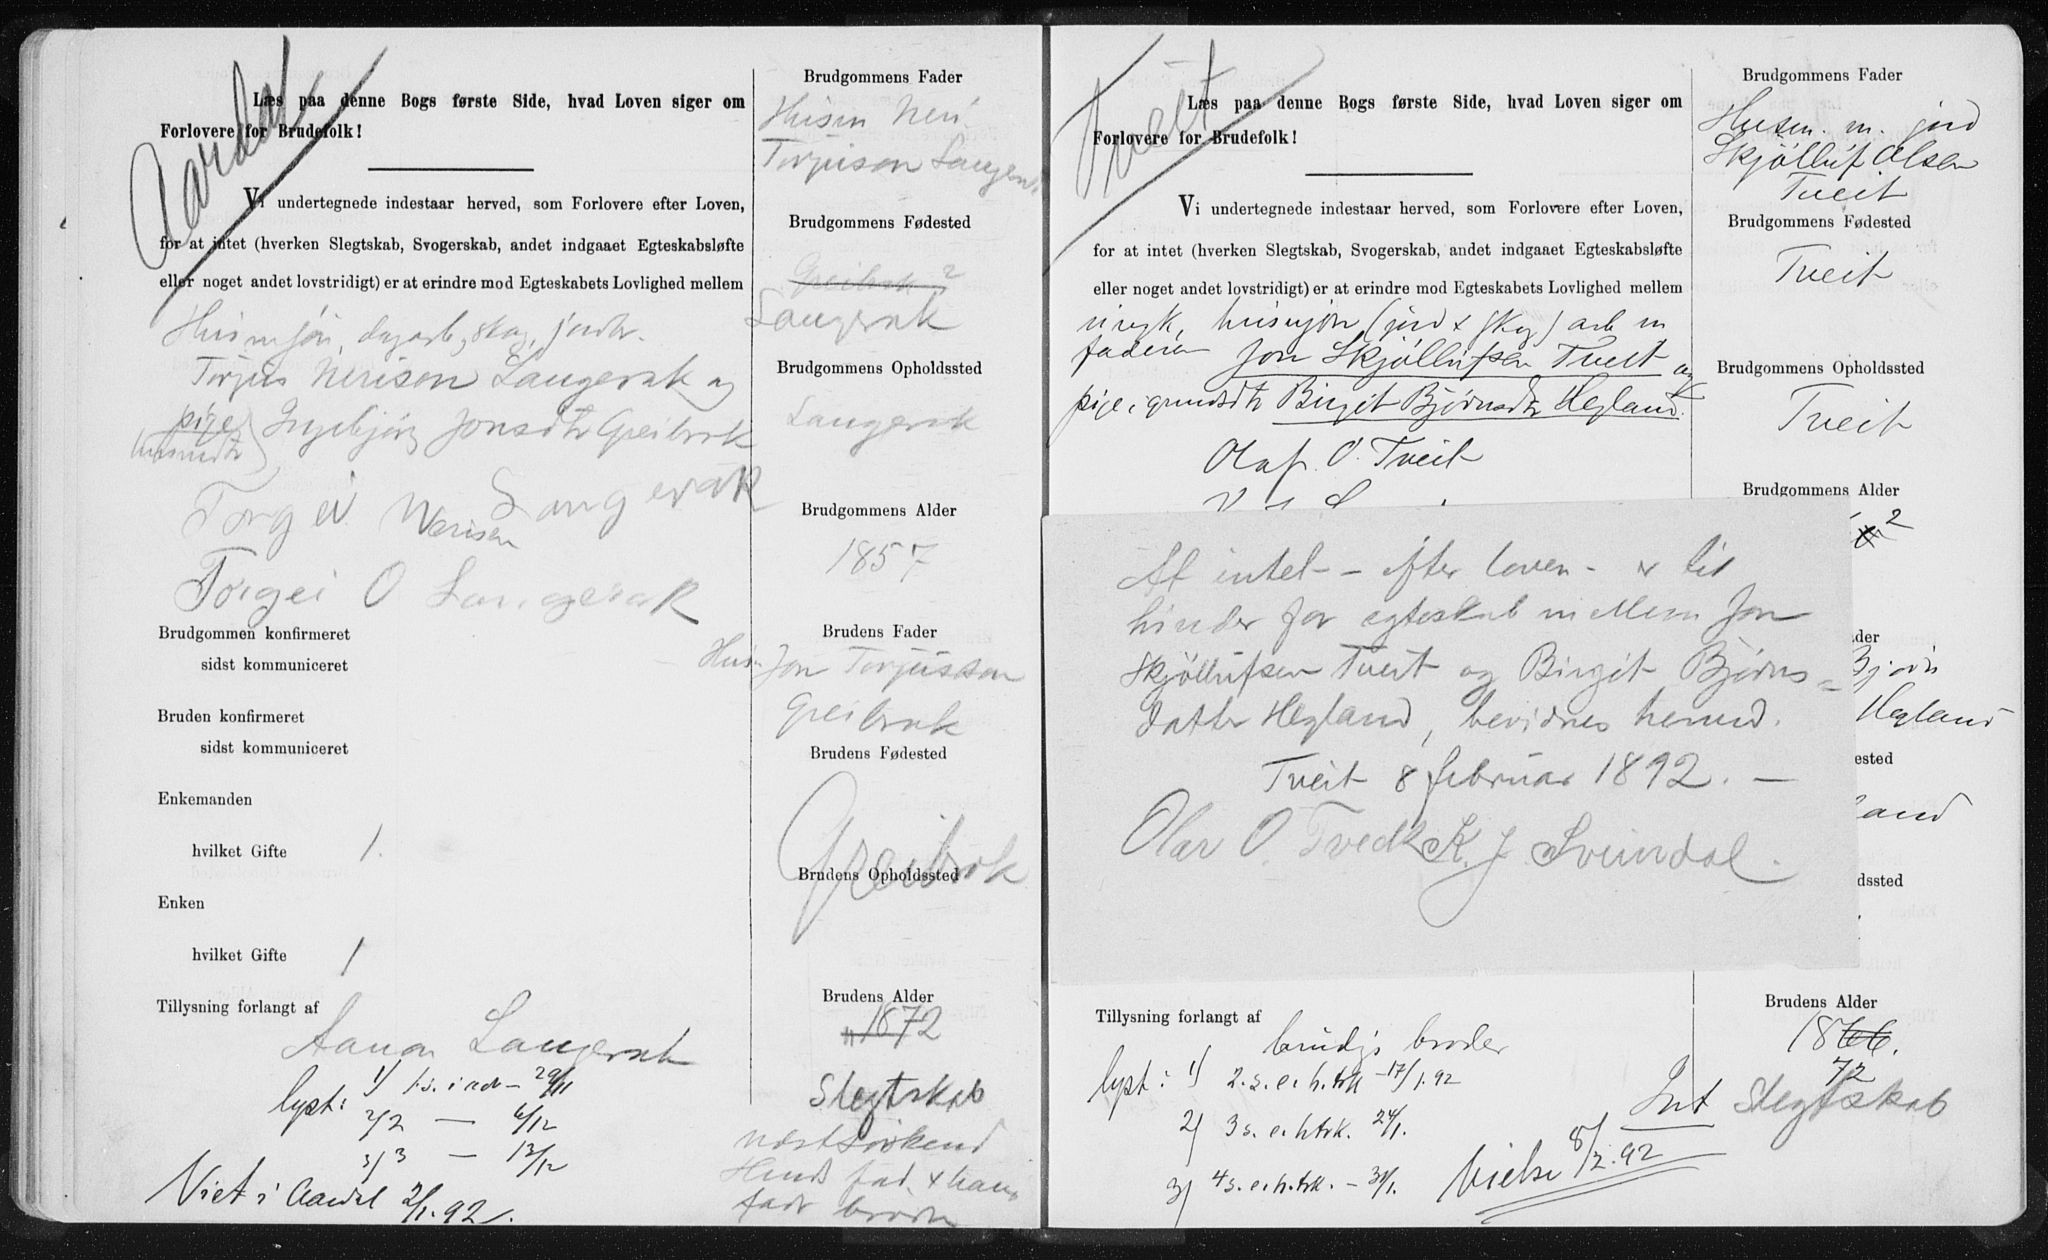 Aardal
Læs paa denne Bogs første Side, hvad Loven siger om
Forlovere for Brudefolk!
Vi undertegnede indestaar herved, som Forlovere efter Loven,
for at intet (hverken Slegtskab, Svogerskab, andet indgaaet Egteskabsløfte
eller noget andet lovstridigt) er at erindre mod Egteskabets Lovlighed mellem
Torjus Nerison Langerak og
pige Ingebjørg Jonsdtr Greibrok
Torgei Nerisen Langerak
Torgei O Langerak
Brudgommen konfirmeret
sidst kommuniceret
Bruden konfirmeret
sidst kommuniceret
Enkemanden
hvilket Gifte 1.
Enken
hvilket Gifte 1
Tillysning forlangt af
Aanon Langerak
lyst: 1) 1. s. i adv - 29/11
2) 2 — 6/12
3) 3 — 13/12
Viet i Aardal 2/1. 92.
Brudgommens Fader
Husm Neri
Torjuson Langerak
Brudgommens Fødested
Greibrok ?
Langerak
Brudgommens Opholdssted
Langerak
Brudgommens Alder
1857
Brudens Fader
Husm Jon Torjusson
Greibrok
Brudens Fødested
Greibrok
Brudens Opholdssted
Brudens Alder
" 1872
Slegtskab
næstsøskend
fad. & hans
brødre
Tveit
Læs paa denne Bogs første Side, hvad Loven siger om
Forlovere for Brudefolk!
Vi undertegnede indestaar herved, som Forlovere efter Loven,
for at intet (hverken Slegtskab, Svogerskab, andet indgaaet Egteskabsløfte
eller noget andet lovstridigt) er at erindre mod Egteskabets Lovlighed mellem
ungk, husmsøn (jord & skog) arb m
faderen Jon Skjøllufsen Tveit og
pige, grmdsdtr Birgit Bjørnsdtr Hegland.
Olaf O. Tveit
At intet - efter loven - er til
hinder for egteskab mellem Jon
Skjøllufsen Tveit og Birgit Bjørns=
datter Hegland, bevidnes herved.
Tveit 8 februar 1892. —
Olav O. Tvedt K. J. Sveindal.
Tillysning forlangt af
brudgs broder
lyst: 1) 2. s. e. h. trk - 17/1. 92
2) 3 s. e. h. trk. 24/1.
3) 4 s. e. h. trk. - 31/1.
Vielse 8/2. 92
Int
Brudgommens Fader
Husm. m. jord
Skjølluf Olsen
Tveit
Brudgommens Fødested
Tveit
Brudgommens Opholdssted
Tveit
Brudgommens Alder
2
der
Bjørn
Hegland
ested
land
dssted
Brudens Alder
1866.
72
Slegtskab